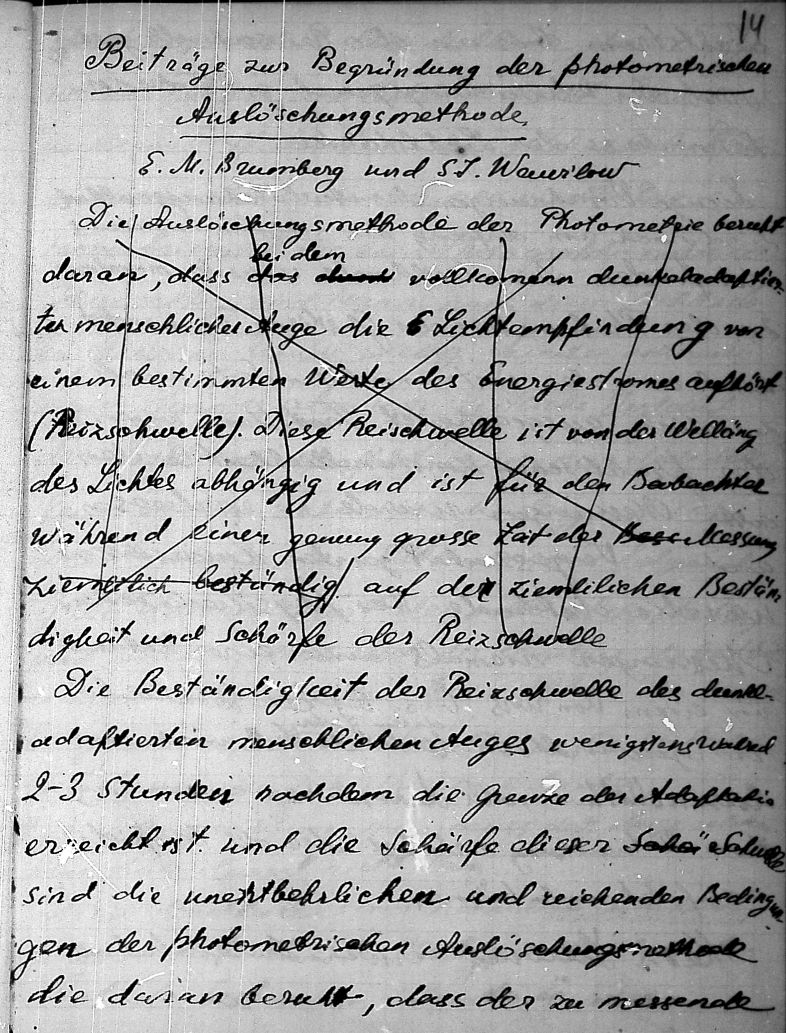 14
Beiträge zur Begründung der photometrischen
Auslöschungsmethode.
E. M. Brumberg und S.I. Wawilow
Die Auslöschungsmethode der Photometrie beruht
bei dem
daran, dass das vollkommenn dunkeladaption-
ter menschliches Auge die Lichtempfindung von
einem bestimmten Werte des Energiestromes aufhört
(Reizschwelle). Diese Reischwelle ist von der Welläng
des Lichtes abhängig und ist für den Beobachter
während einer genung grosse Zeit der Messung
ziemlich beständig auf der ziemlilichen Bestän-
digkeit und Schärfe der Reizschwelle
Die Beständigkeit der Reizschwelle des dunkel-
adaptierten menschlichen Auges wenigstens
2-3 Stunden nachdem die Grenze der Adaptatio
erreicht ist und die Schärfe dieser
sind die unentbehrlichen und reichenden Bedingun-
gen der photometrischen Auslöschungsmethode
die daran beruht, dass der zu messende